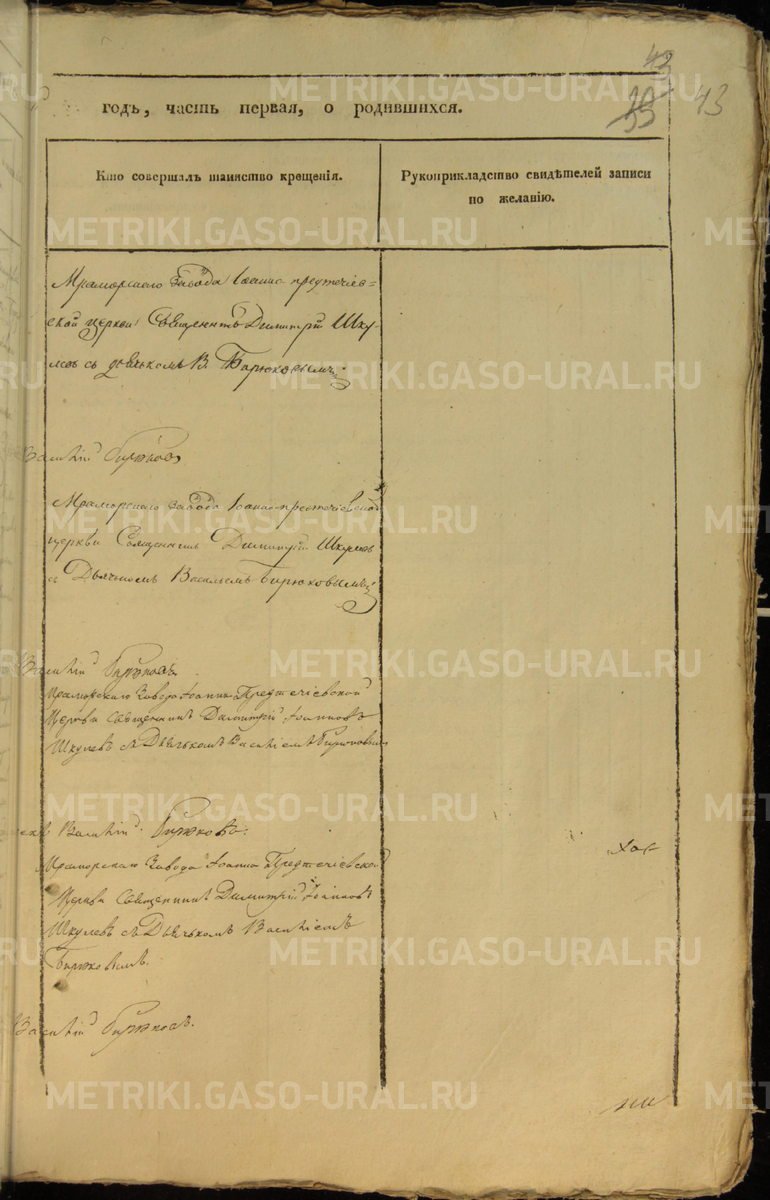 43
33
43
годъ, часть первая, о родившихся.
Кто совершалъ таинство крещенія.
Рукоприкладство свидѣтелей записи
по желанію.
Мраморскаго завода Іоанно-предтечіев=
ской церкви Священникъ Димитрій Шку-
левъ съ дьячкомъ В. Бирюковымъ
Василій Бирюковъ
Мраморскаго завода Іоанно-предтечіевской
церкви Священникъ Димитрій Шкулевъ
с Дьячкомъ Васильемъ Бирюковымъ
Василій Бирюковъ.
Мраморскаго Завода Іоанно Предтечіевской
Церкви Священникъ Димитрій Іоанновъ
Шкулевъ съ Дьячькомъ Василіемъ Бирюковымъ
Василій Бирюковъ.
Мраморскаго Завода Іоанно Предтечіевской
Церкви Священникъ Димитрій Іоанновъ
Шкулевъ съ Дьячькомъ Василіемъ
Бирюковымъ.
Василій Бирюковъ.
METRIKI.GASO-URAL.RU